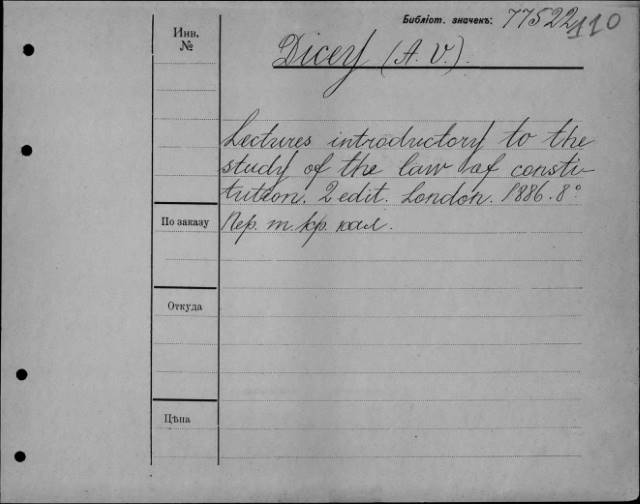 Библіот. значекъ: 77522
110
Инв. №
Dicey (A. V.).
Lectures introductory to the
study of the law of consti-
tution. 2 edit. London. 1886. 8°
По заказу
Пер. т. кр. кал.
Откуда
Цѣна